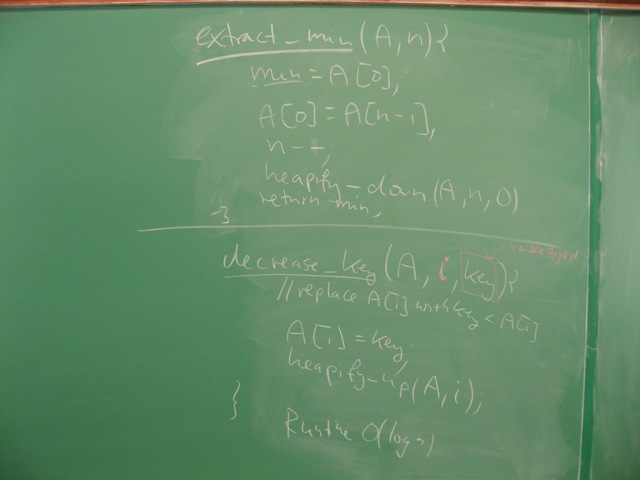 extract_min(A,n){
min = A[0];
A[0] = A[n-1];
n--;
heapify-down(A,n,0)
return min;
}
decrease_key(A, i, key){
// replace A[i] with key < A[i]
A[i] = key;
heapify-up(A,i);
}
Runtime O(log n)